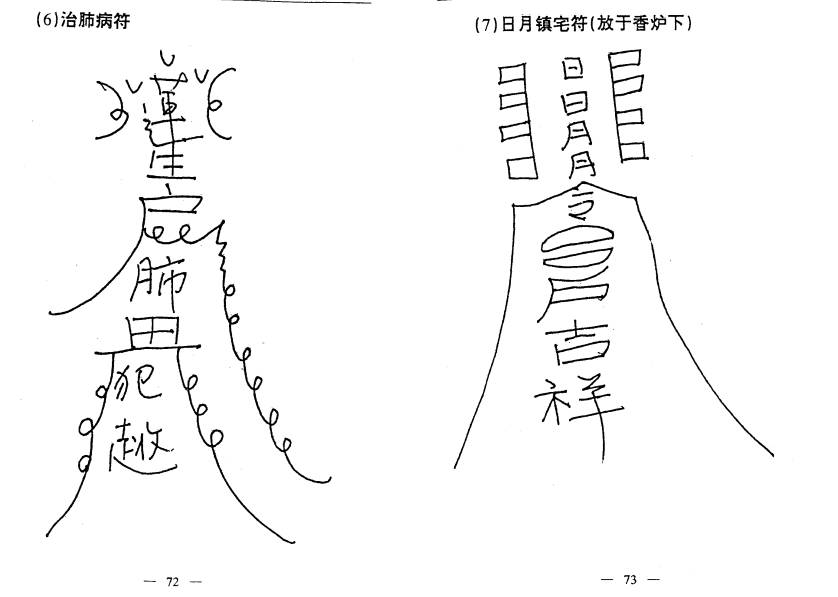 (6)治肺病符
蓮
生
肺
犯
— 72 —
(7)日月镇宅符(放于香炉下)
日
日
月
月
吉
祥
— 73 —